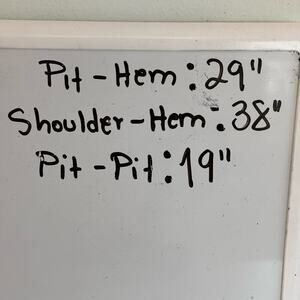 Pit - Hem: 29"
Shoulder - Hem: 38"
Pit - Pit: 19"